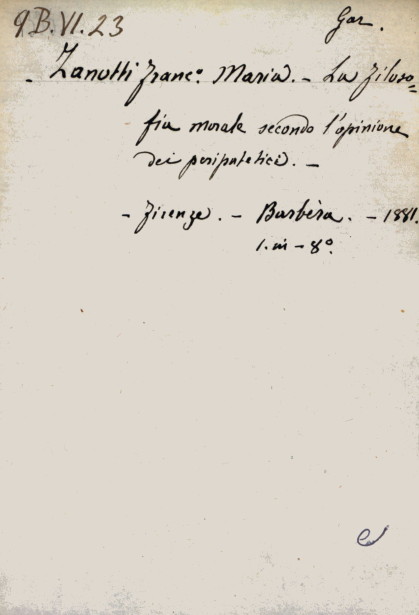 9.B.VI.23
Gar.
- Zanotti Franc.º Maria. - La Filoso=
fia morale secondo l'opinione
dei peripatetici. -
- Firenze. - Barbèra. - 1881.
1. in - 8º.